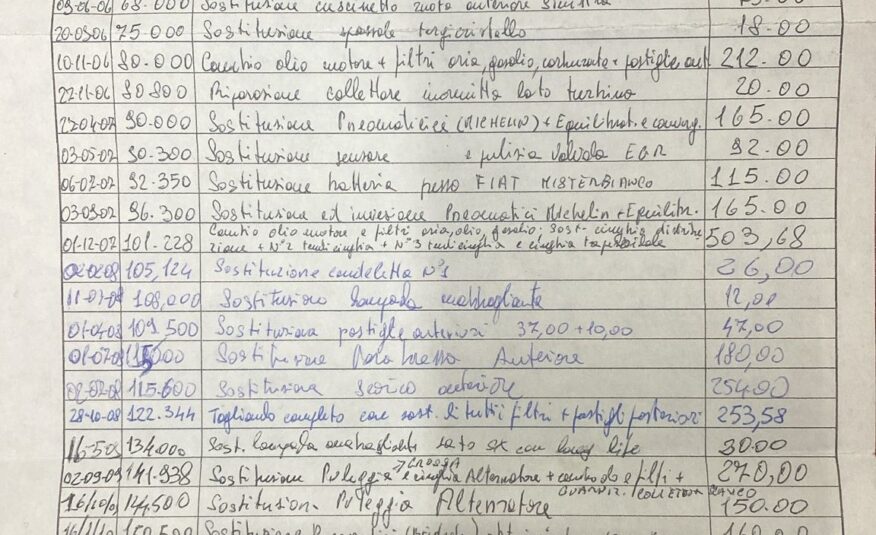 09-06-06 68.000 Sostituzione cuscinetto ruota anteriore sinistra
20-09-06 75.000 Sostituzione spazzole tergicristallo 18.00
10-11-06 80.000 Cambio olio motore + filtri aria, gasolio, carburante + pastiglie ant 212.00
22-11-06 80800 Riparazione collettore immitta lato turbina 20.00
27-04-07 90.000 Sostituzione Pneumatici (MICHELIN) + Equilibrat. e converg. 165.00
03-05-07 90.300 Sostituzione sensore e pulizia valvola EGR 92.00
06-07-07 92.350 Sostituzione batteria presso FIAT MISTERBIANCO 115.00
03-09-07 96.300 Sostituzione ed inversione Pneumatici Michelin + Equilibr. 165.00
01-12-07 101.228 Cambio olio motore e filtri aria, olio, gasolio; Sost. cinghia distribu
zione + N°2 tendicinghia + N°3 tendicinghia e cinghia trapezoidale 503,68
105,124 Sostituzione candeletta N°1 26,00
108,000 Sostituzione lampada anabbagliante 12,00
01-04-08 109.500 Sostituzione pastiglie anteriori 37,00+10,00 47,00
01-07-08 115000 Sostituzione Anteriore 180,00
02-07-08 115.600 Sostituzione anteriore 254,00
28-10-08 122.344 Tagliando completo con sost. di tutti filtri + pastigli posteriori 253,58
16-5-09 134000 Sost. lampada anabbagliante lato sx con long life 30.00
02-09-09 141.938 Sostituzione Puleggia e cinghia Alternatore + cambio olio e filtri + 270,00
GUARNIZ. COLLETTORE
16/10/09 144.500 Sostituzion. Puleggia Alternatore 150.00
160.00